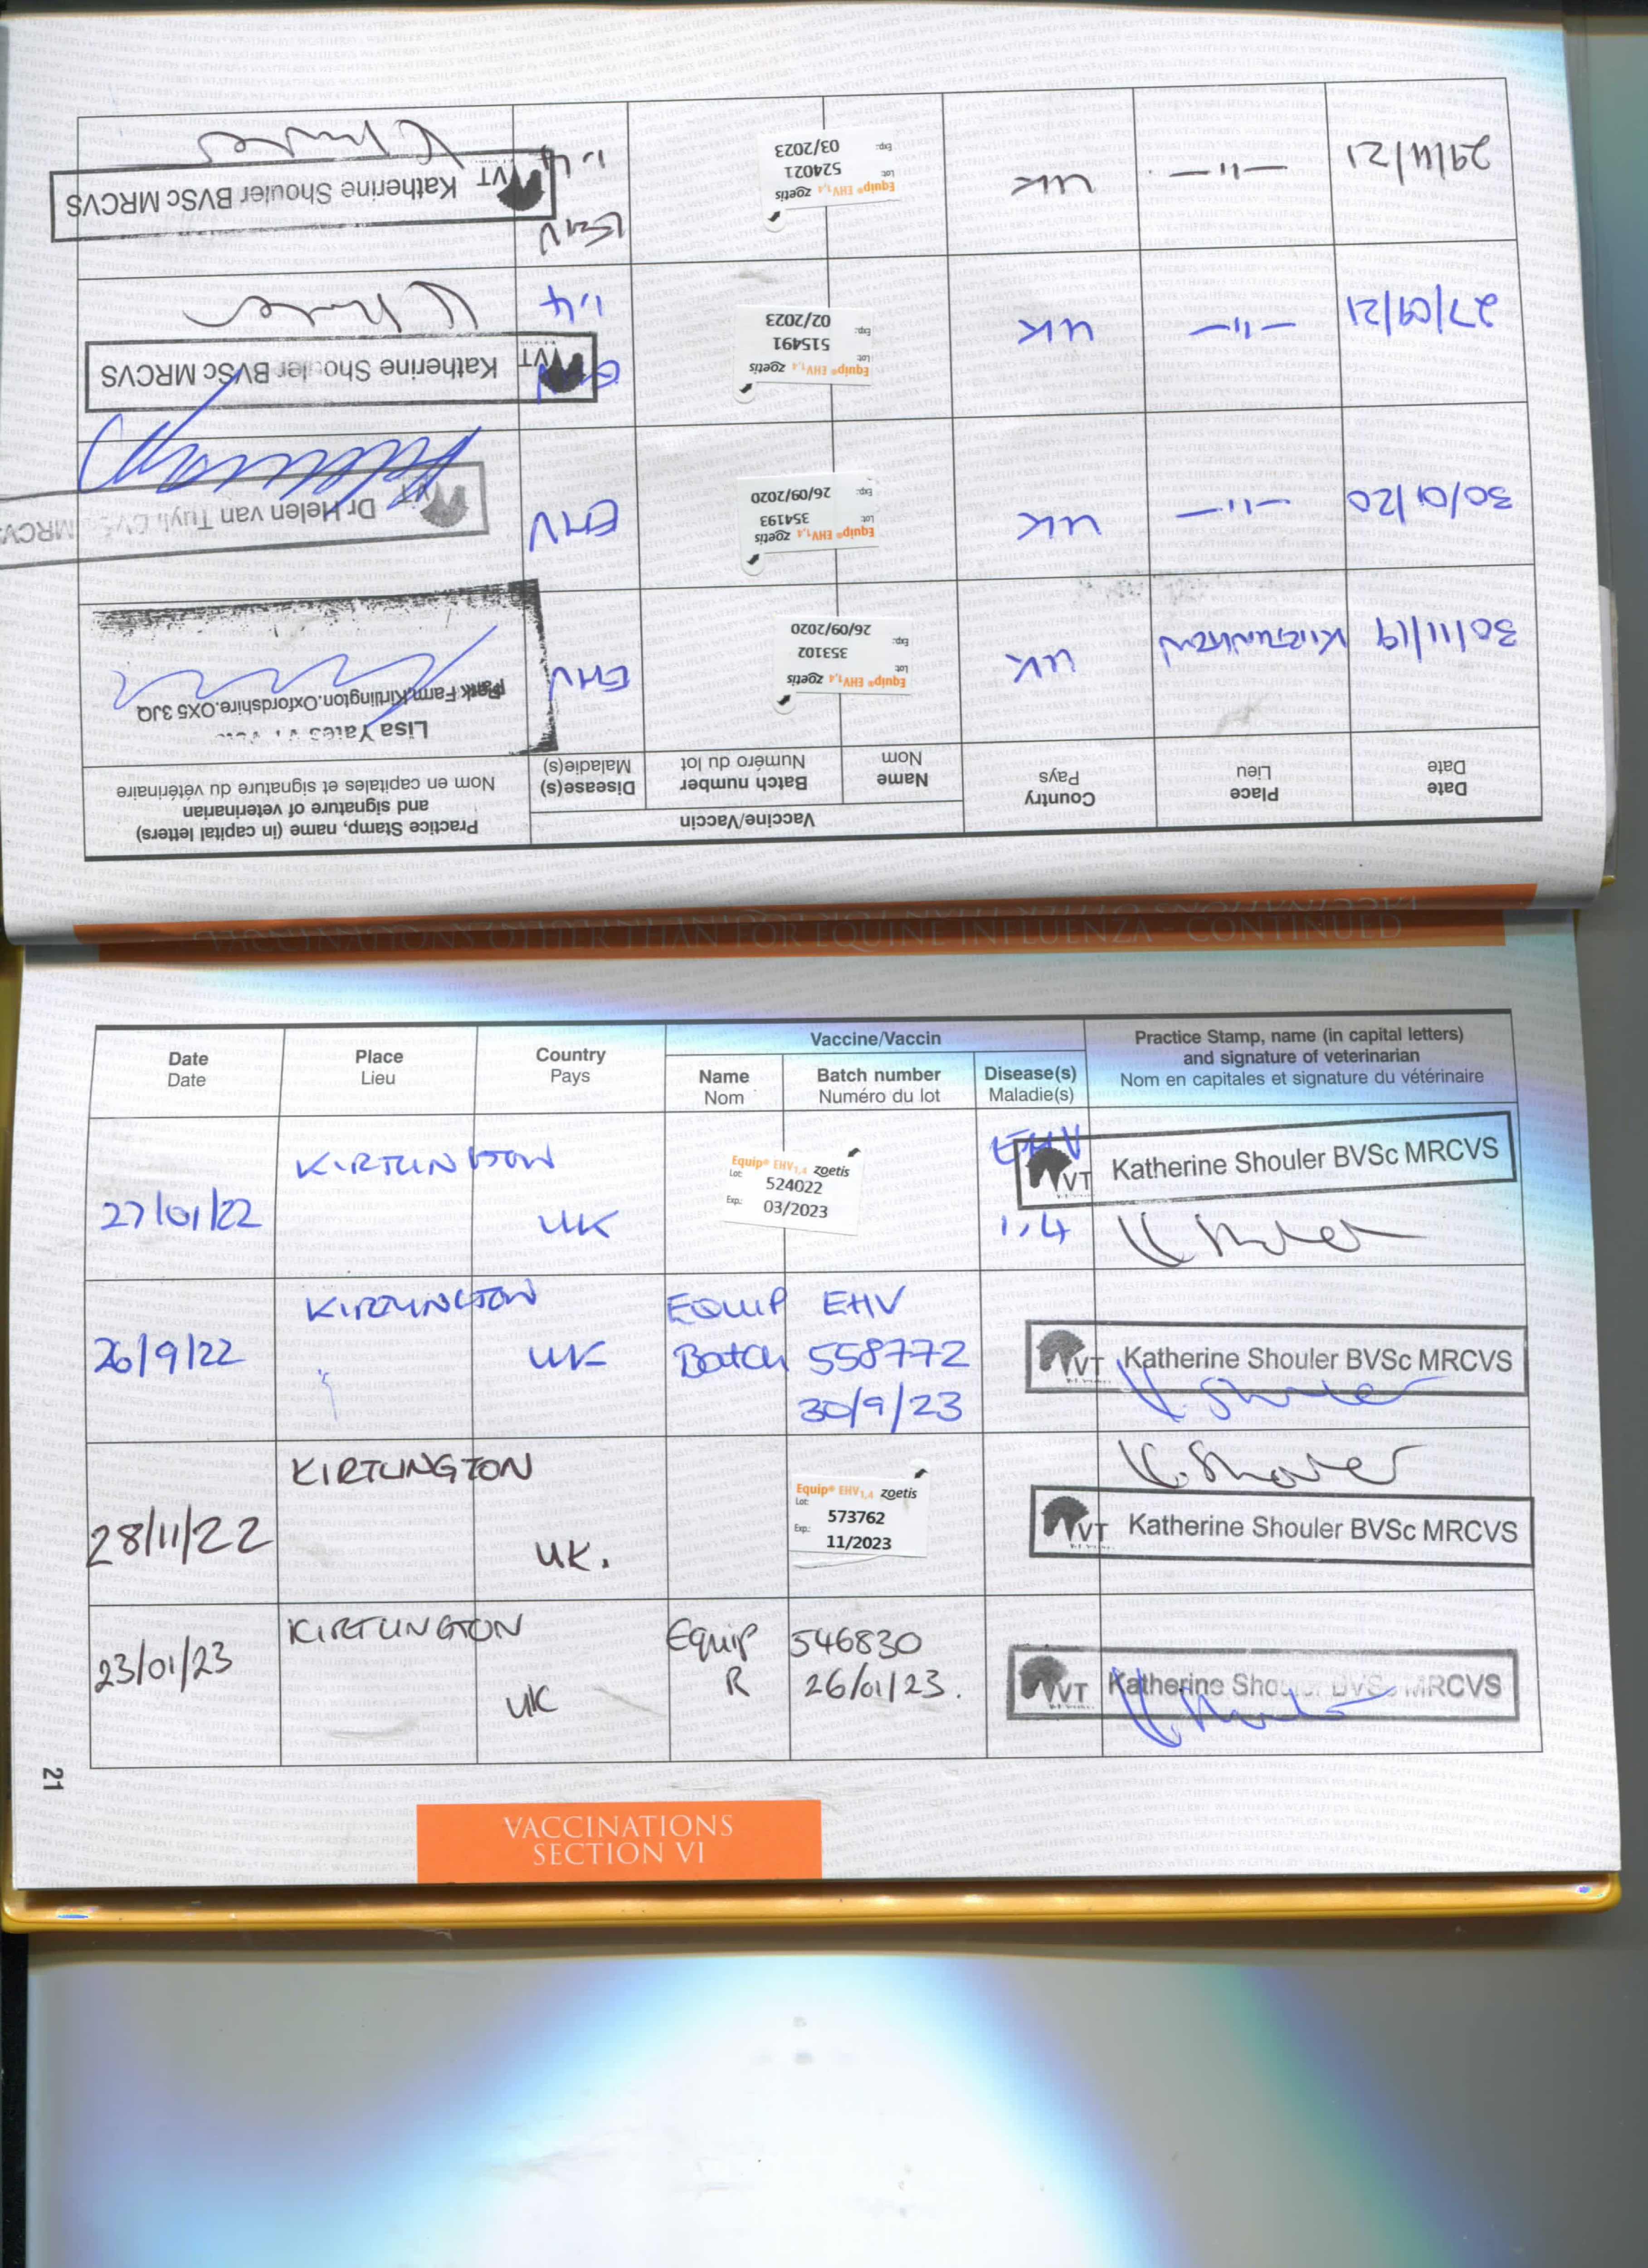 VACCINATIONS OTHER THAN FOR EQUINE INFLUENZA - CONTINUED
Date
Date
Place
Lieu
Country
Pays
Vaccine/Vaccin
Name
Nom
Batch number
Numéro du lot
Disease(s)
Maladie(s)
Practice Stamp, name (in capital letters)
and signature of veterinarian
Nom en capitales et signature du vétérinaire
30/11/19
KIRTLINGTON
UK
Equip® EHV1,4 zoetis
Lot: 353102
Exp: 26/09/2020
EHV
Lisa Yates
Park Farm.Kirtlington.Oxfordshire.OX5 3JQ
30/01/20
—11—
UK
Equip® EHV1,4 zoetis
Lot: 354193
Exp: 26/09/2020
EHV
VT Dr Helen van Tuyll MRCVS
27/09/21
—11—
UK
Equip® EHV1,4 zoetis
Lot: 515491
Exp: 02/2023
EHV
1,4
VT Katherine Shouler BVSc MRCVS
29/11/21
—11—
UK
Equip® EHV1,4 zoetis
Lot: 524021
Exp: 03/2023
EHV
1,4
VT Katherine Shouler BVSc MRCVS
Date
Date
Place
Lieu
Country
Pays
Vaccine/Vaccin
Name
Nom
Batch number
Numéro du lot
Disease(s)
Maladie(s)
Practice Stamp, name (in capital letters)
and signature of veterinarian
Nom en capitales et signature du vétérinaire
27/01/22
KIRTLINGTON
UK
Equip® EHV1,4 zoetis
Lot: 524022
Exp.: 03/2023
EHV
1,4
VT Katherine Shouler BVSc MRCVS
K Shouler
26/9/22
KIRTLINGTON
UK
EQUIP EHV
Batch 558772
30/9/23
VT Katherine Shouler BVSc MRCVS
K. Shouler
28/11/22
KIRTLINGTON
UK.
Equip® EHV1,4 zoetis
Lot: 573762
Exp.: 11/2023
K. Shouler
VT Katherine Shouler BVSc MRCVS
23/01/23
KIRTLINGTON
UK
Equip 546830
R 26/01/23.
VT Katherine Shouler BVSc MRCVS
K. Shouler
21
VACCINATIONS
SECTION VI